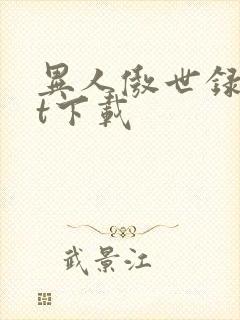 異人傲世録
t下載
武景江